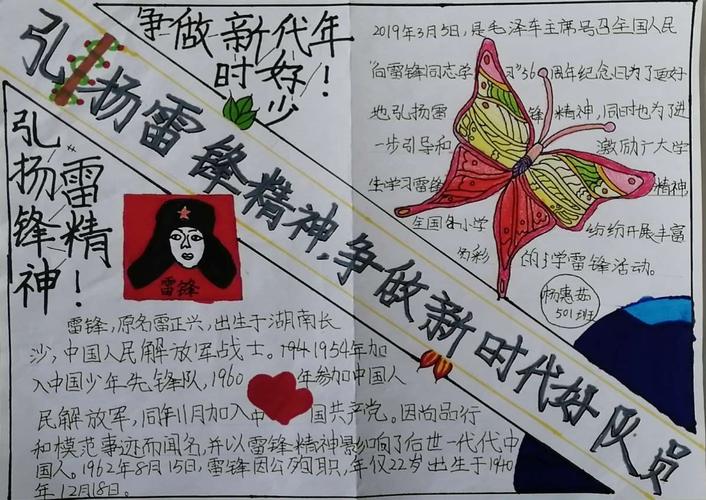 争做新时代好少年！
弘扬雷锋精神,争做新时代好队员
弘扬雷锋精神！
雷锋
雷锋,原名雷正兴,出生于湖南长
沙,中国人民解放军战士。1941954年加
入中国少年先锋队,1960年参加中国人
民解放军,同年11月加入中国共产党。因尚品行
和模范事迹而闻名,并以雷锋精神影响了后世一代代中
国人。1962年8月15日,雷锋因公殉职,年仅22岁出生于1940
年12月18日。
2019年3月5日,是毛泽东主席号召全国人民
"向雷锋同志学习"56周年纪念日为了更好
地弘扬雷锋精神,同时也为了进
一步引导和激励广大学
生学习雷锋精神
全国各小学纷纷开展丰富
多彩的学雷锋活动。
杨惠茹
501班